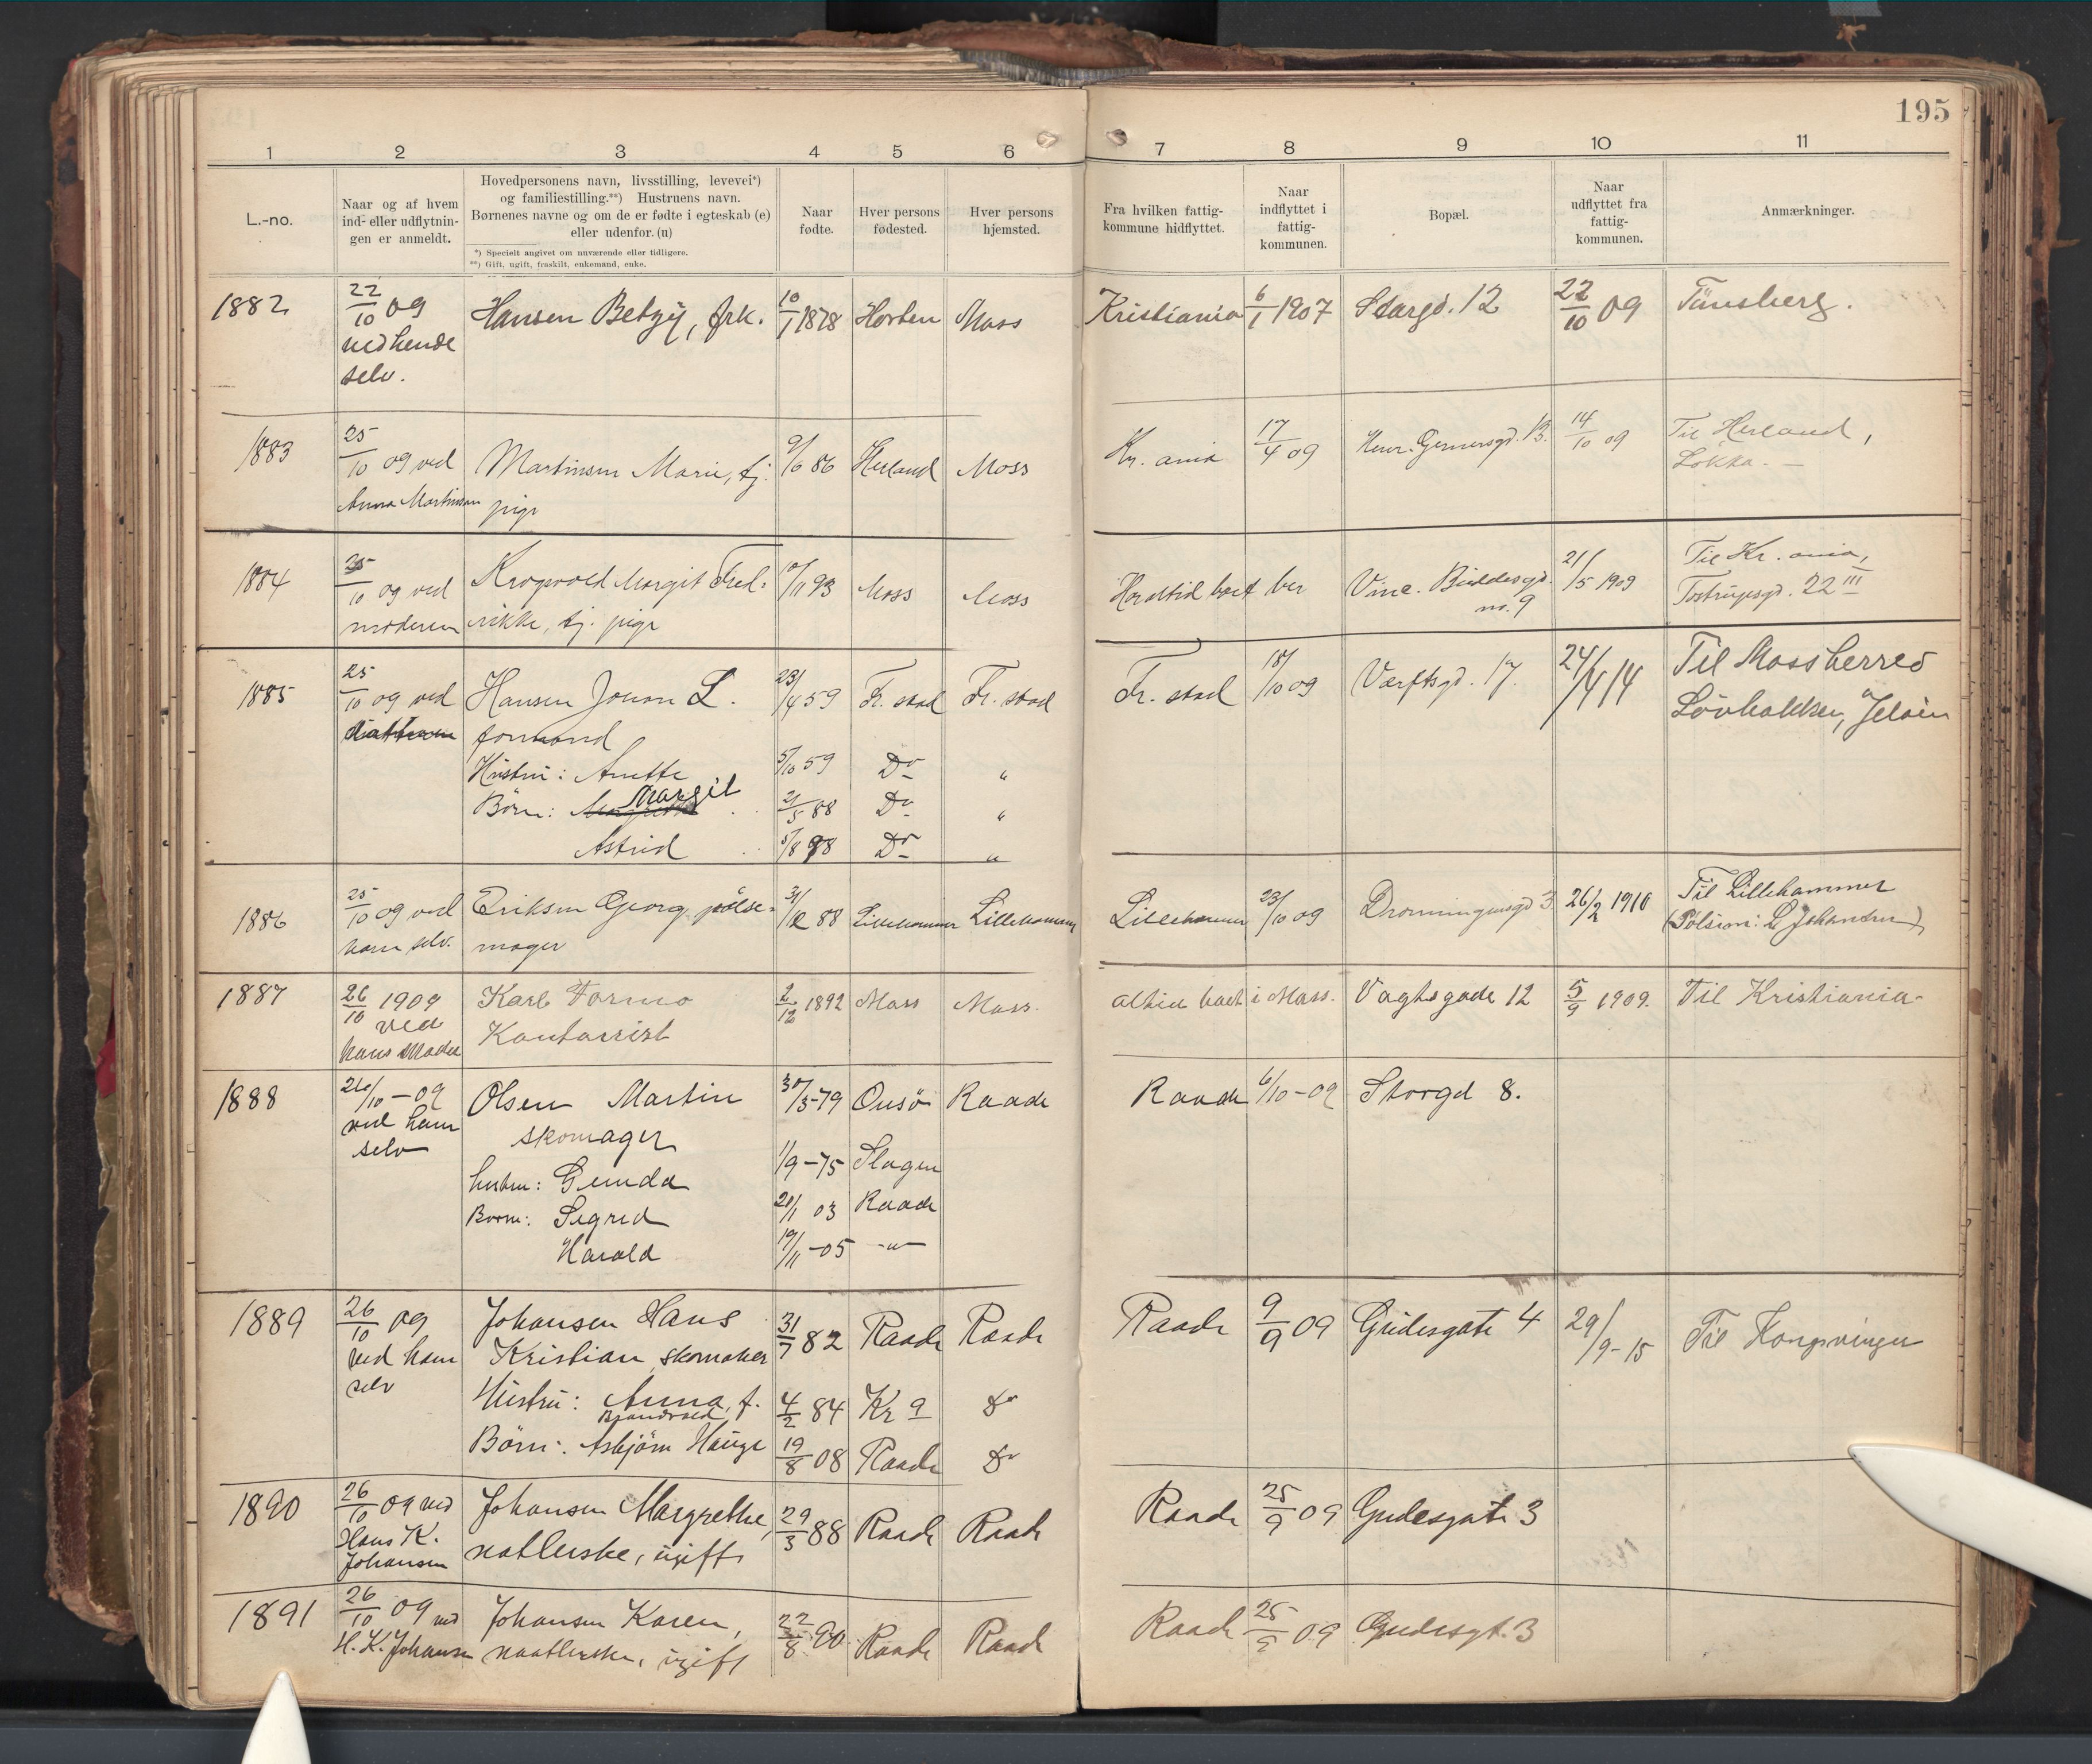 195
1 2 3 4 5 6 7 8 9 10 11
L.-no.
Naar og af hvem
ind- eller udflytnin-
gen er anmeldt.
Hovedpersonens navn, livsstilling, levevei*)
og familiestilling.**) Hustruens navn.
Børnenes navne og om de er fødte i egteskab (e)
eller udenfor. (u)
*) Specielt angivet om nuværende eller tidligere.
**) Gift, ugift, fraskilt, enkemand, enke.
Naar
fødte.
Hver persons
fødested.
Hver persons
hjemsted.
Fra hvilken fattig-
kommune hidflyttet.
Naar
indflyttet i
fattig-
kommunen.
Bopæl.
Naar
udflyttet fra
fattig-
kommunen.
Anmærkninger.
1882 22/10 09 Hansen Betzy, frk. 10/1 1878 Horten Moss Kristiania 6/1 1907 Storgd. 12 22/10 09 Tünsberg.
ved hende
selv.
1883 25/10 09 ved Martinsen Marie, tj. 9/6 86 Herland Moss Kr. ania 17/4 09 Henr. Gernersgd. 13. 14/10 09 Til Herland,
Anna Martinsen pige Lokka. —
1884 25/10 09 ved Krogsvold Margit Fred- 10/11 93 Moss Moss Har altid boet her Vinc. Buddesgd. 21/5 1909 Til Kr. ania,
moderen rikke, tj. pige no. 9 Tostrupsgd. 22 III
1885 25/10 09 ved Hansen Johan L. 23/4 59 Fr. stad Fr. stad Fr. stad 18/10 09 Værftsgd. 17. 24/4 14 Til Mossherred
formand Jeløen
Hustru: Anette 5/10 59 Do "
Børn: Margit 21/5 88 Do "
Astrid 5/8 98 Do "
1886 25/10 09 ved Eriksen Georg, pølse- 31/12 88 Lillehammer Lillehammer Lillehammer 23/10 09 Dronningensgd 3 26/2 1910 Til Lillehammer
ham selv. mager (Pølsem: L Johansen)
1887 26/10 1909 Karl Formo 2/12 1892 Moss Moss. altid boet i Moss. Vogtsgade 12 5/9 1909. Til Kristiania-
ved Kontorist
hans Moder
1888 26/10 - 09 Olsen Martin 30/3-79 Onsø Raade Raade 6/10-09 Storgd 8.
ved ham skomager
selv
hustru: Gunda 1/9-75 Slagen
Børn: Sigrid 20/1 03 Raade
Harald 19/11-05 -"-
1889 26/10 09 Johansen Hans 31/7 82 Raade Raade Raade 9/9 09 Gudesgate 4 29/9-15 Til Kongsvinger
ved ham Kristian, skomaker
selv Hustru: Anna, f. 4/2 84 Kr a do
Børn: Asbjørn Hauge 19/8 08 Raade do
1890 26/10 09 ved Johansen Margrethe, 29/3 88 Raade Raade Raade 25/9 09 Gudesgate 3
Hans K. natlerske, ugift
Johansen
1891 26/10 09 ved Johansen Karen, 22/8 90 Raade Raade Raade 25/9 09 Gudesgt. 3
H. K. Johansen naatlerske, ugift